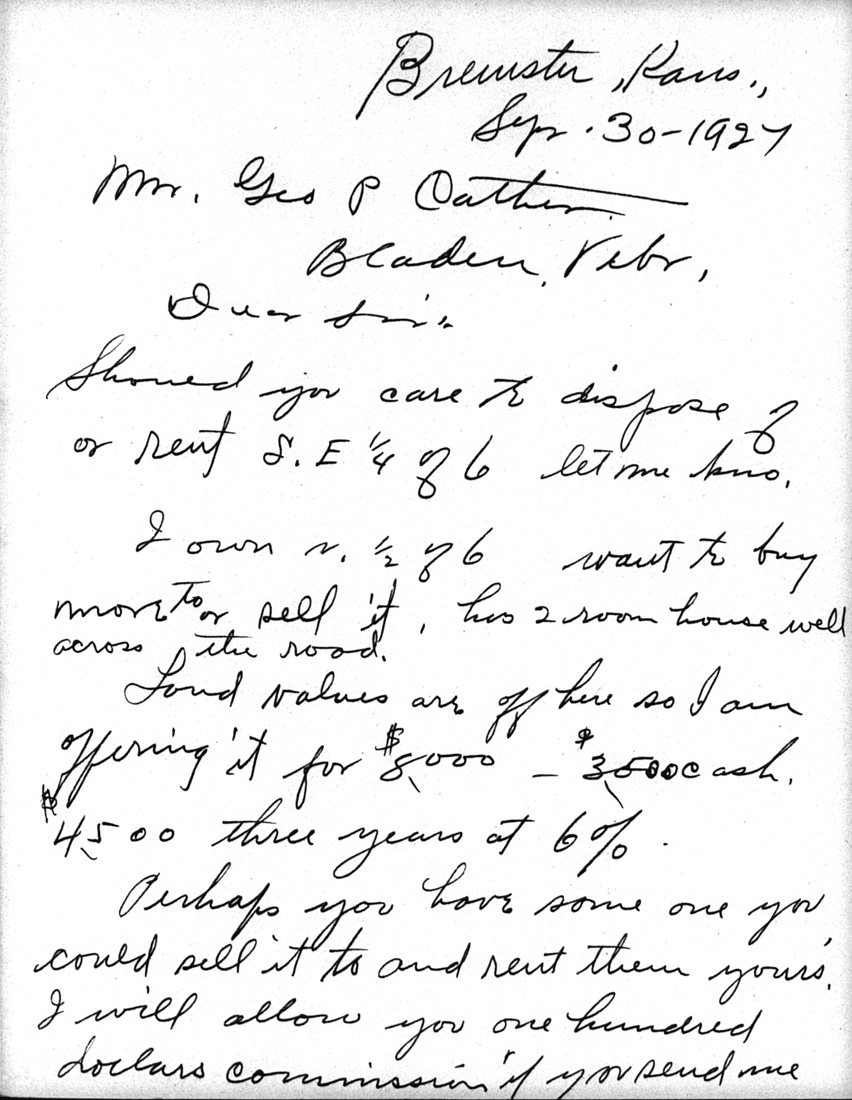 Brewster, Kans.,
Sep. 30-1927
Mr. Geo P Cather
Bladen, Nebr,
Dear Sir:
Should you care to dispose of
or rent S.E 1/4 of 6 let me kno.
I own N. 1/2 of 6 want to buy
more to or sell it, has 2 room house well
across the road.
Land values are off here so I am
offering it for $8,000 - $3,500 cash.
$4,500 three years at 6%.
Perhaps you have some one you
could sell it to and rent them yours.
I will allow you one hundred
dollars commission if you send me